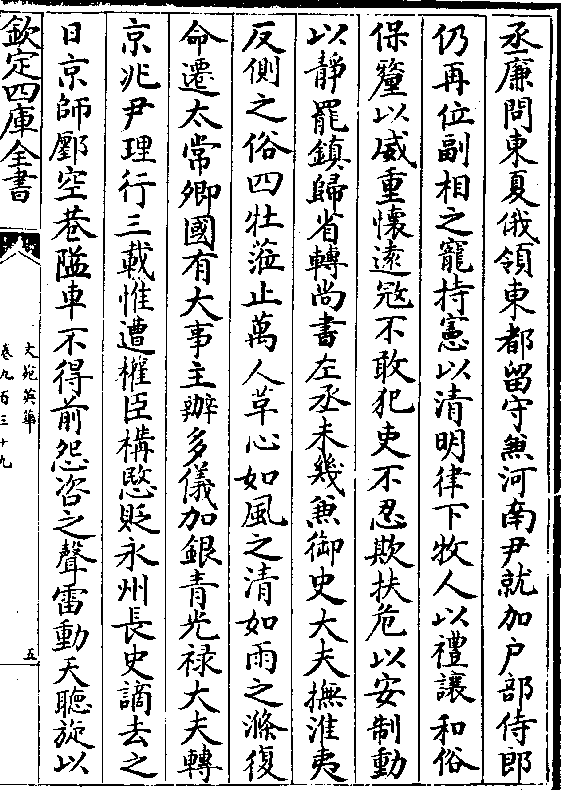 丞廉問東夏俄領東都留守兼河南尹就加户部侍郎
仍再位副相之寵持憲以清明律下牧人以禮讓和俗
保釐以威重懷遠寇不敢犯吏不忍欺扶危以安制動
以靜罷鎮歸省轉尚書左丞未幾兼御史大夫撫淮夷
反側之俗四牡蒞止萬人草心如風之清如雨之滌復
命遷太常卿國有大事主辦多儀加銀青光禄大夫轉
京兆尹理行三載惟遭權臣構愍貶永州長史謫去之
日京師鄽空巷隘車不得前怨咨之聲雷動天聽旋以
欽定四庫全書
文苑英華
卷九百三十九
五